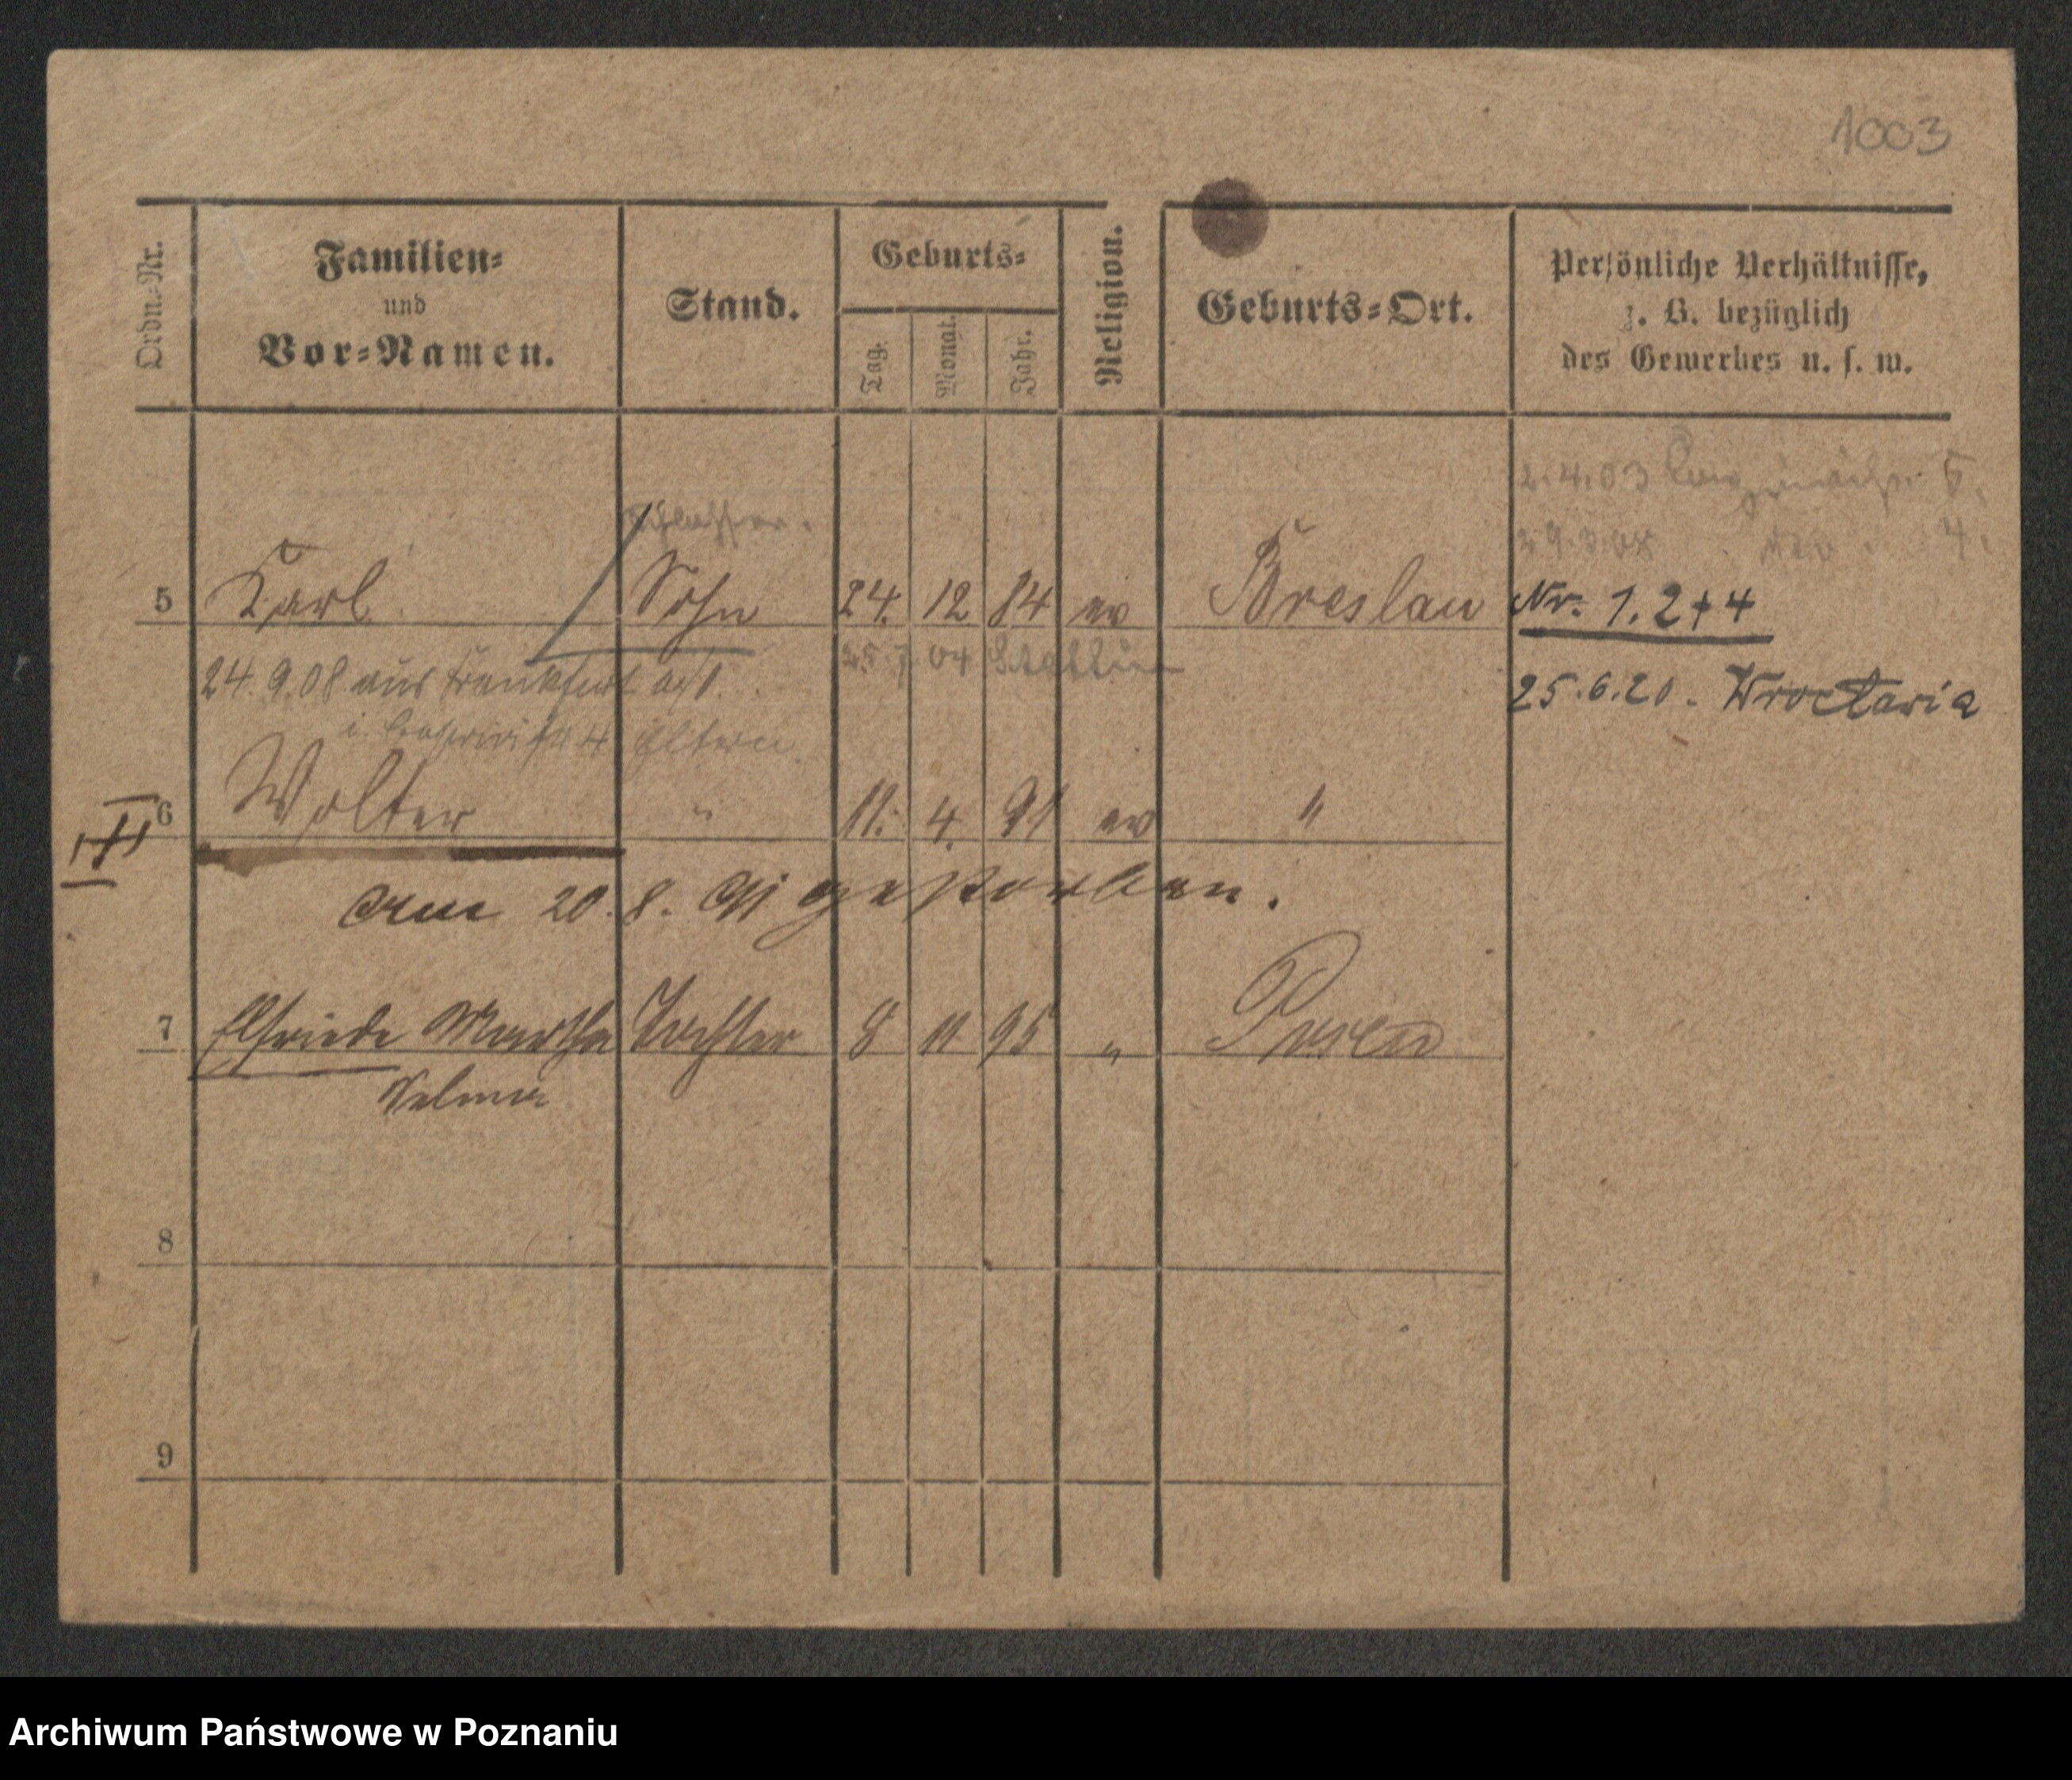 1003
Ordn.-Nr.
Familien-
und
Vor-Namen.
Stand.
Geburts-
Tag.
Monat.
Jahr.
Religion.
Geburts-Ort.
Persönliche Verhältnisse,
z. B. bezüglich
des Gewerbes u. s. w.
2.4.03 5.
4.
Schlosser.
5 Karl Sohn 24. 12 84 ev Breslau Nr. 1. 2 + 4
04 Stettin
24.9.08 aus Frankfurt a/O. 25.6.20. Wrocławia
4 Eltern
6 Walter " 11. 4. 91 ev "
II
am 20.8.91 gestorben.
7 Elfriede Martha Tochter 8 11 95 " Posen
8
9
Archiwum Państwowe w Poznaniu